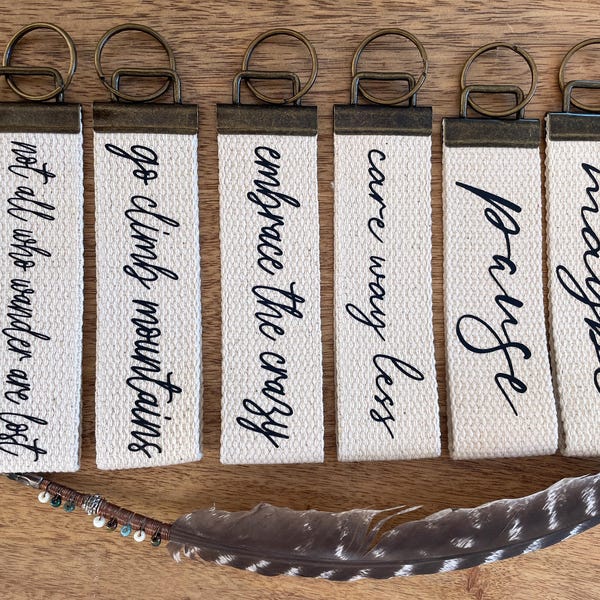 not all who wander are lost
go climb mountains
embrace the crazy
care way less
pause
maybe